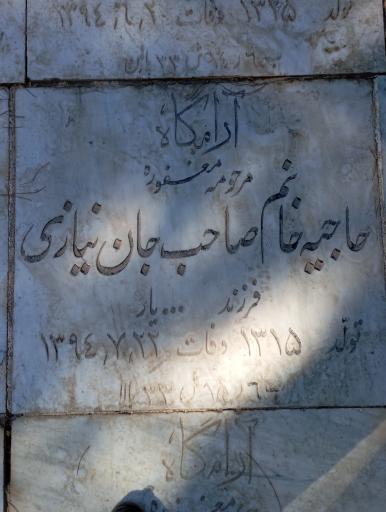 تولد ۱۳۳۵ وفات
آرامگاه
مرحومه مغفوره
حاجیه خانم صاحب جان نیازی
فرزند ... یار
تولد ۱۳۱۵ وفات ۱۳۹۴,۷,۲۲
آرامگاه